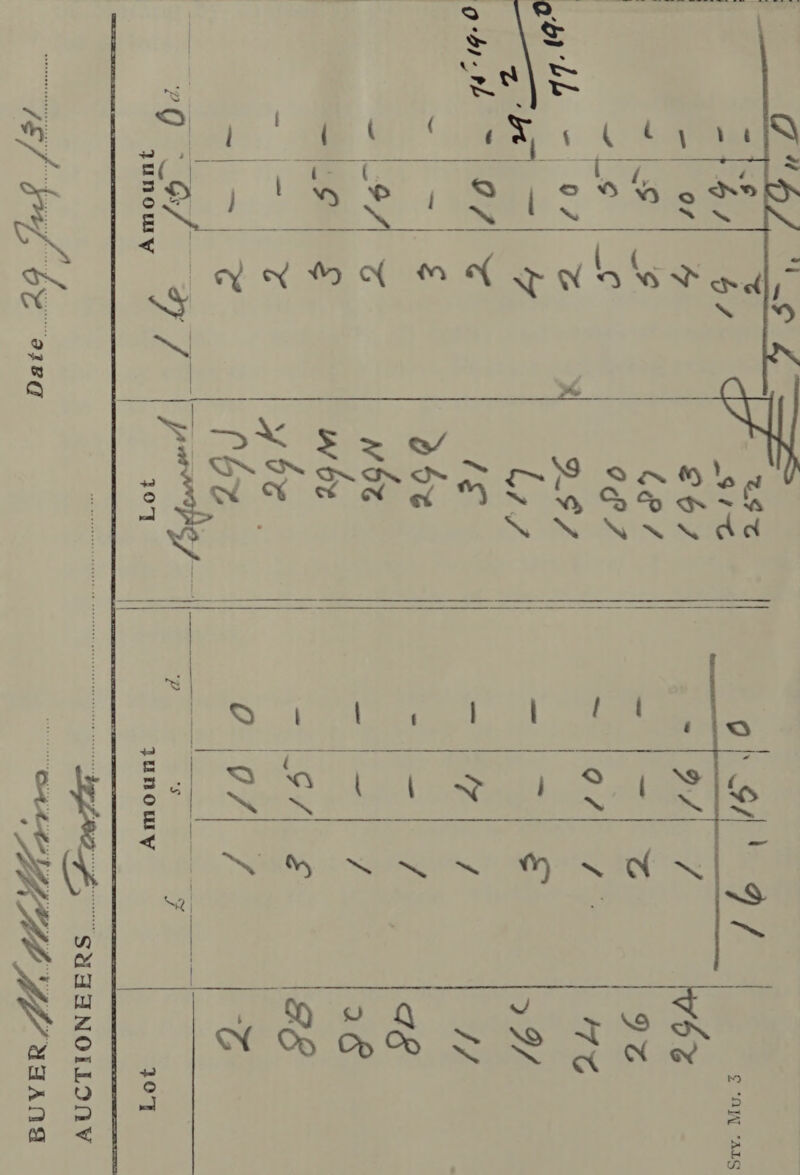 BUYER Date 29 July /31
AUCTIONEERS Foster
Lot Amount Lot Amount
£ s. d. 16 15. 0d.
2. 1 10 0 29J 2 - -
8B 3 15 - 29K 2 - -
8C 1 - - 29M 3 5 -
8D 1 - - 29N 2 15 -
11 1 4 - 29Q 3 - -
16C 3 - - 31 2 10 - 75.19.0
24 1 10 - 117 4 - - 29. 2
26 2 - - 156 x 2 10 - 77.19.0
29A 1 16 - 180 5 5 -
16, 15, 0 187 5 5 -
193 4 10 -
215 19 19 -
252 2 5 -
£75 " 19 " 0
STY. MU. 3